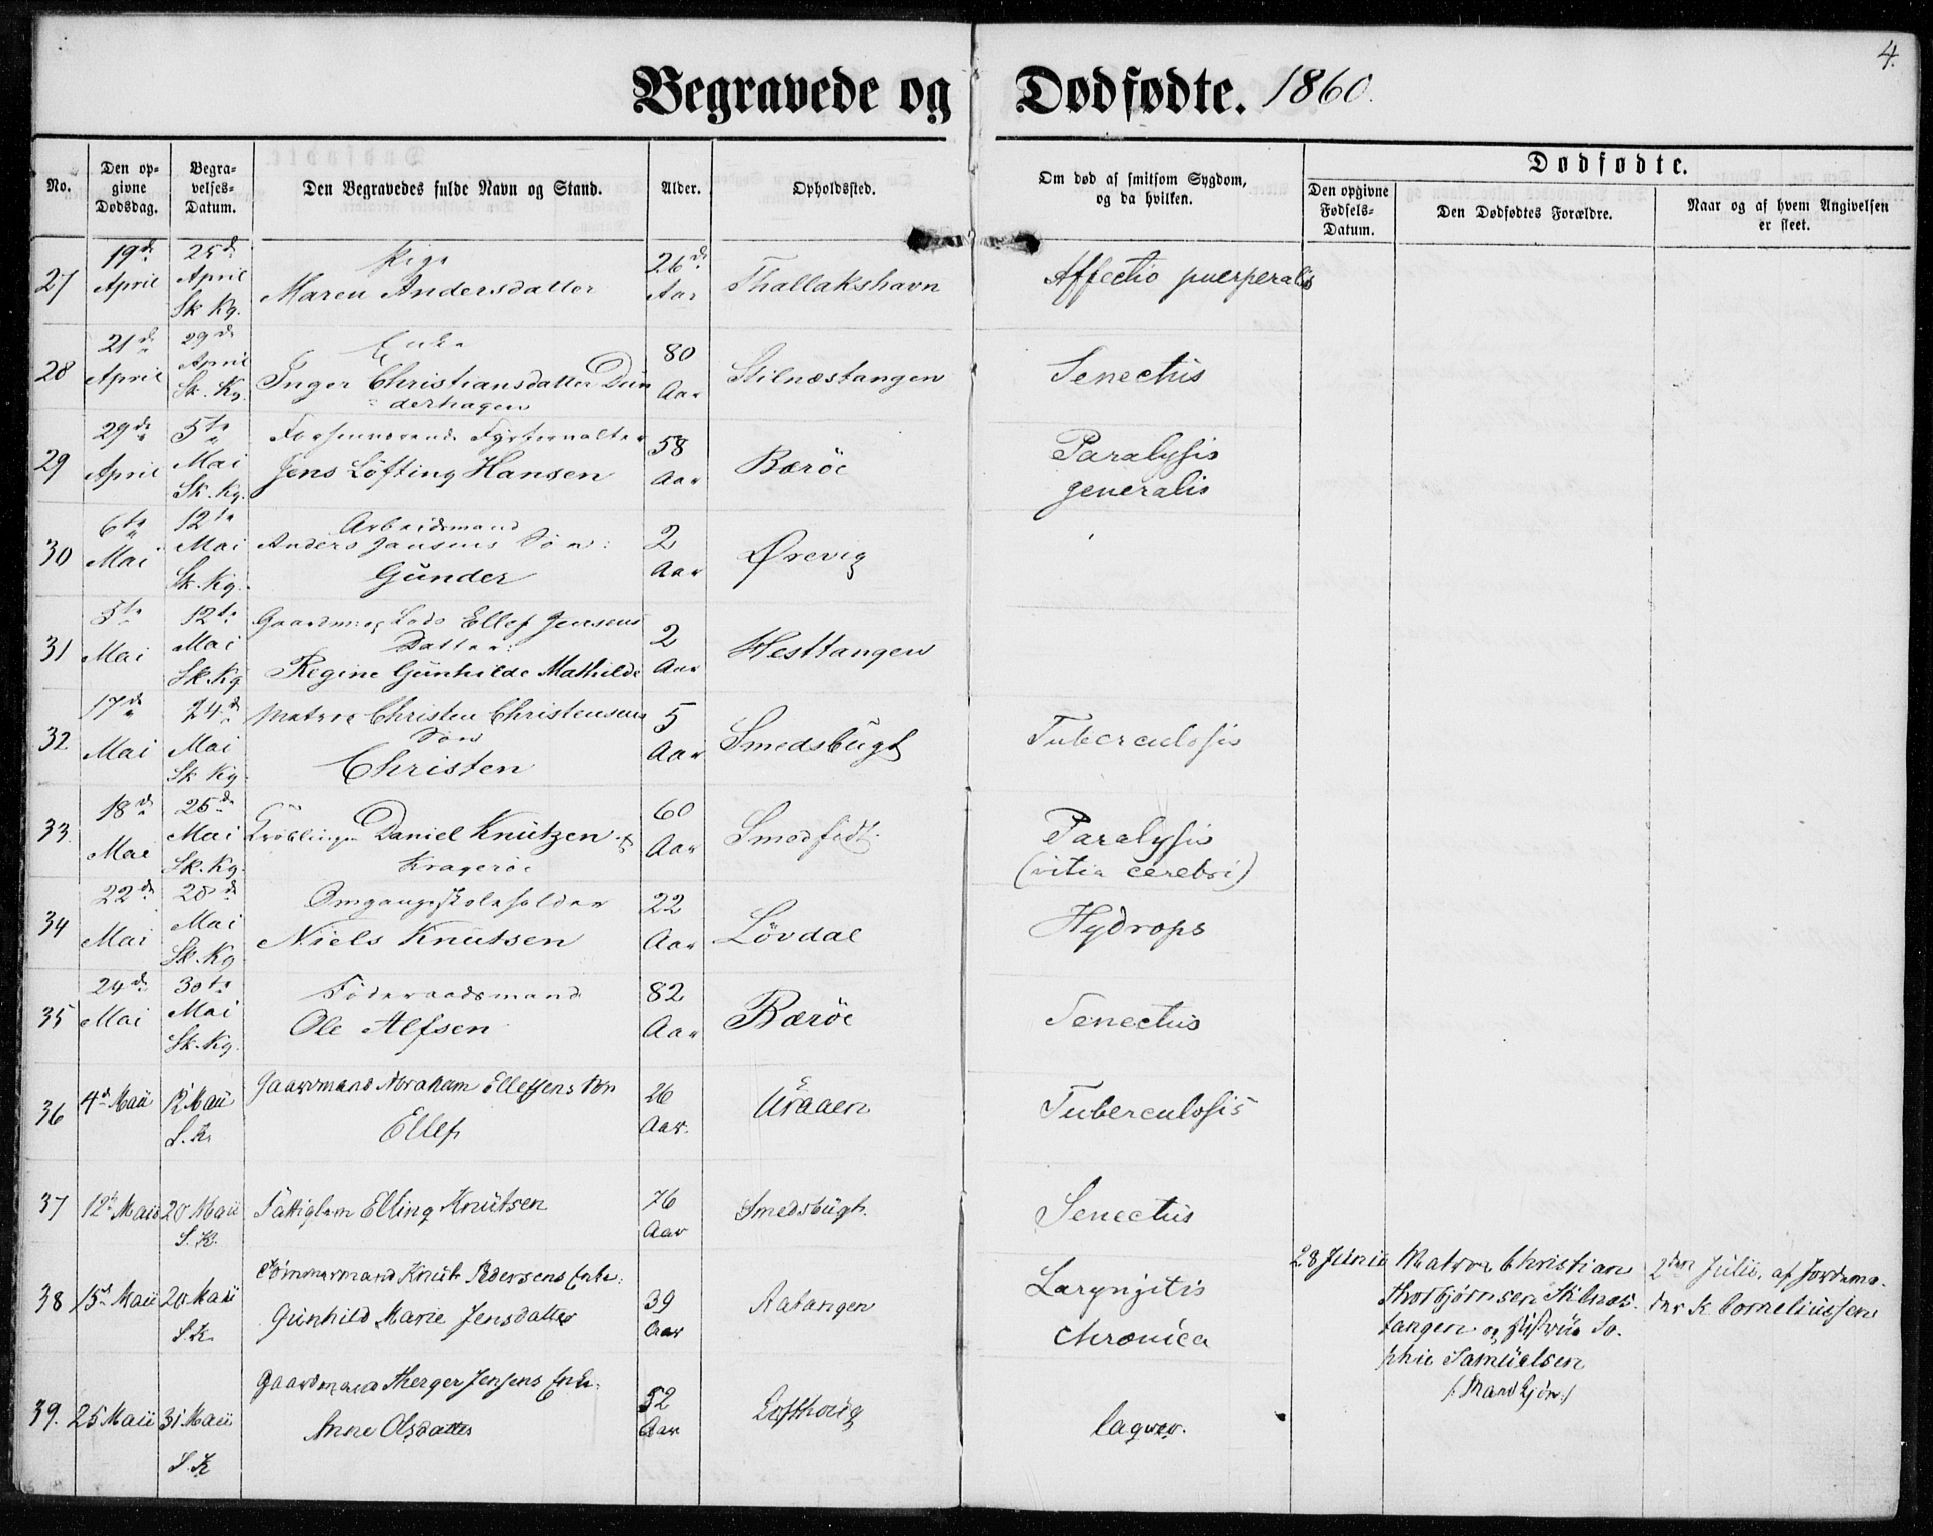 4.
Begravede og Dødfødte. 1860.
No.
Den op-
givne
Dødsdag.
Begra-
velses-
Datum.
Den Begravedes fulde Navn og Stand.
Alder.
Opholdssted.
Om død af smitsom Sygdom,
og da hvilken.
Dødfødte.
Den opgivne
Fødsels-
Datum.
Den Dødfødtes Forældre.
Naar og af hvem Angivelsen
er skeet.
27
19de
April
25de
April
Sk. Kg.
Pige
Maren Andersdatter
26de
Aar
Thallakshavn
Affectio puerperalis
28
21de
April
29de
April
Sk. Kg.
Enke
Inger Christiansdatter Dun
derhagen
80
Aar
Stilnæstangen
Senectus
29
29de
April
5te
Mai
Sk. Kg.
Forhenværende Fyrforvalter
Jens Löfting Hansen
58
Aar
Bæröe
Paralysis
generalis
30
6te
Mai
12te
Mai
Sk. Kg.
Arbeidsmand
Anders Jansens Søn:
Gunder
2
Aar
Ørevig
31
5te
Mai
12te
Mai
Sk. Kg
Gaardm: og Lods Ellef Jensens
Datter:
Regine Gunhilde Mathilde
2
Aar
Hesttangen
32
17de
Mai
24de
Mai
Sk. Kg.
Matros Christen Christensens
Søn
Christen
5
Aar
Smedsbugt
Tuberculosis
33.
18de
Mai
25de
Mai
Sk. Kg.
Daniel Knutzen af
Kragerøe
60
Aar
Paralysis
(vitia cerebri)
34
22de
Mai
28de
Mai
Sk. Kg
Omgangsskoleholder
Niels Knutsen
22
Aar
Lövdal
Hydrops
35
24de
Mai
30te
Mai
Sk. Kg.
Föderaadsmand
Ole Alfsen
82
Aar
Bæröe
Senectus
36
4de Maii
12 Maii
S. K.
Gaardmand Abraham Ellefsens Søn
Ellef
26
Aar.
Tuberculosis
37
12te Maii
20 Maii
S. K.
Fattiglem Elling Knutsen
76
Aar
Smedsbugt.
Senectus
38
15de Maii
20 Maii
S. K.
Tömmermand Knut Pedersens Enke:
Gunhild Marie Jensdatter
39
Aar
Aatangen
Laryngitis
chronica
28 Junii
Matros Christian
Thorbjörnsen Stilnæs-
tangen og Hustrue So-
phie Samuelsen
(: Mandkjön :)
2den Julii, af Jordemo-
der K. Corneliussen
39.
25 Maii
31 Maii
S. K
Gaardmand Therger Jensens Enke:
Anne Olsdatter
52
Aar
Lofthoug